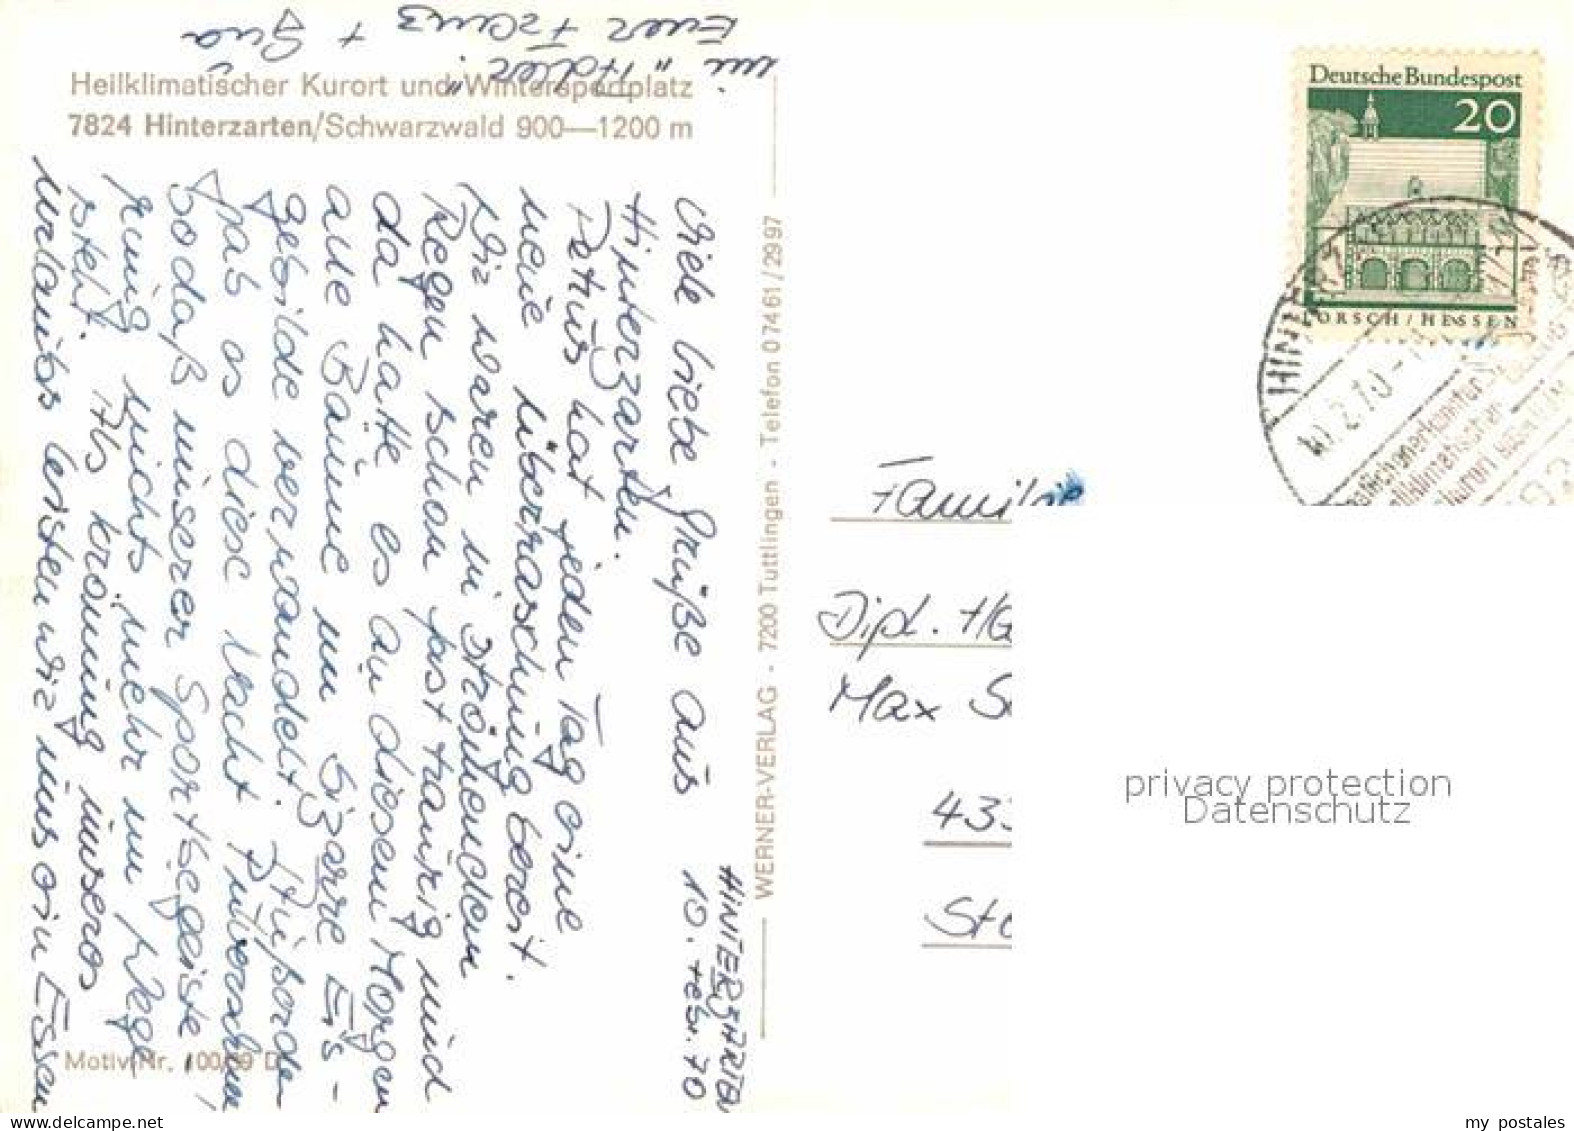 Heilklimatischer Kurort und Wintersportplatz
7824 Hinterzarten/Schwarzwald 900—1200 m
HINTERZARTEN
10. Febr. 70
Viele liebe Grüße aus
Hinterzarten.
Petrus hat jeden Tag eine
neue Überraschung bereit.
Wir waren in strömendem
Regen schon fast traurig und
da hatte es an diesem Morgen
alle Bäume in bizarre Eis-
gebilde verwandelt. Außerdem
gab es diese Nacht Pulverschnee
sodaß unserer Sportbegeiste
rung nichts mehr im Wege
steht. Als Krönung unseres
Urlaubs leisten wir uns ein Essen
im "Adler".
Euer Franz + Gua
Motiv-Nr. 100/69 D
WERNER-VERLAG - 7200 Tuttlingen - Telefon 07461/2997
Deutsche Bundespost
20
LORSCH/HESSEN
HINTERZ
10.2.70
heilklimatischer
Kurort
Familie
Dipl.
Max S
433
privacy protection
Datenschutz
my postales